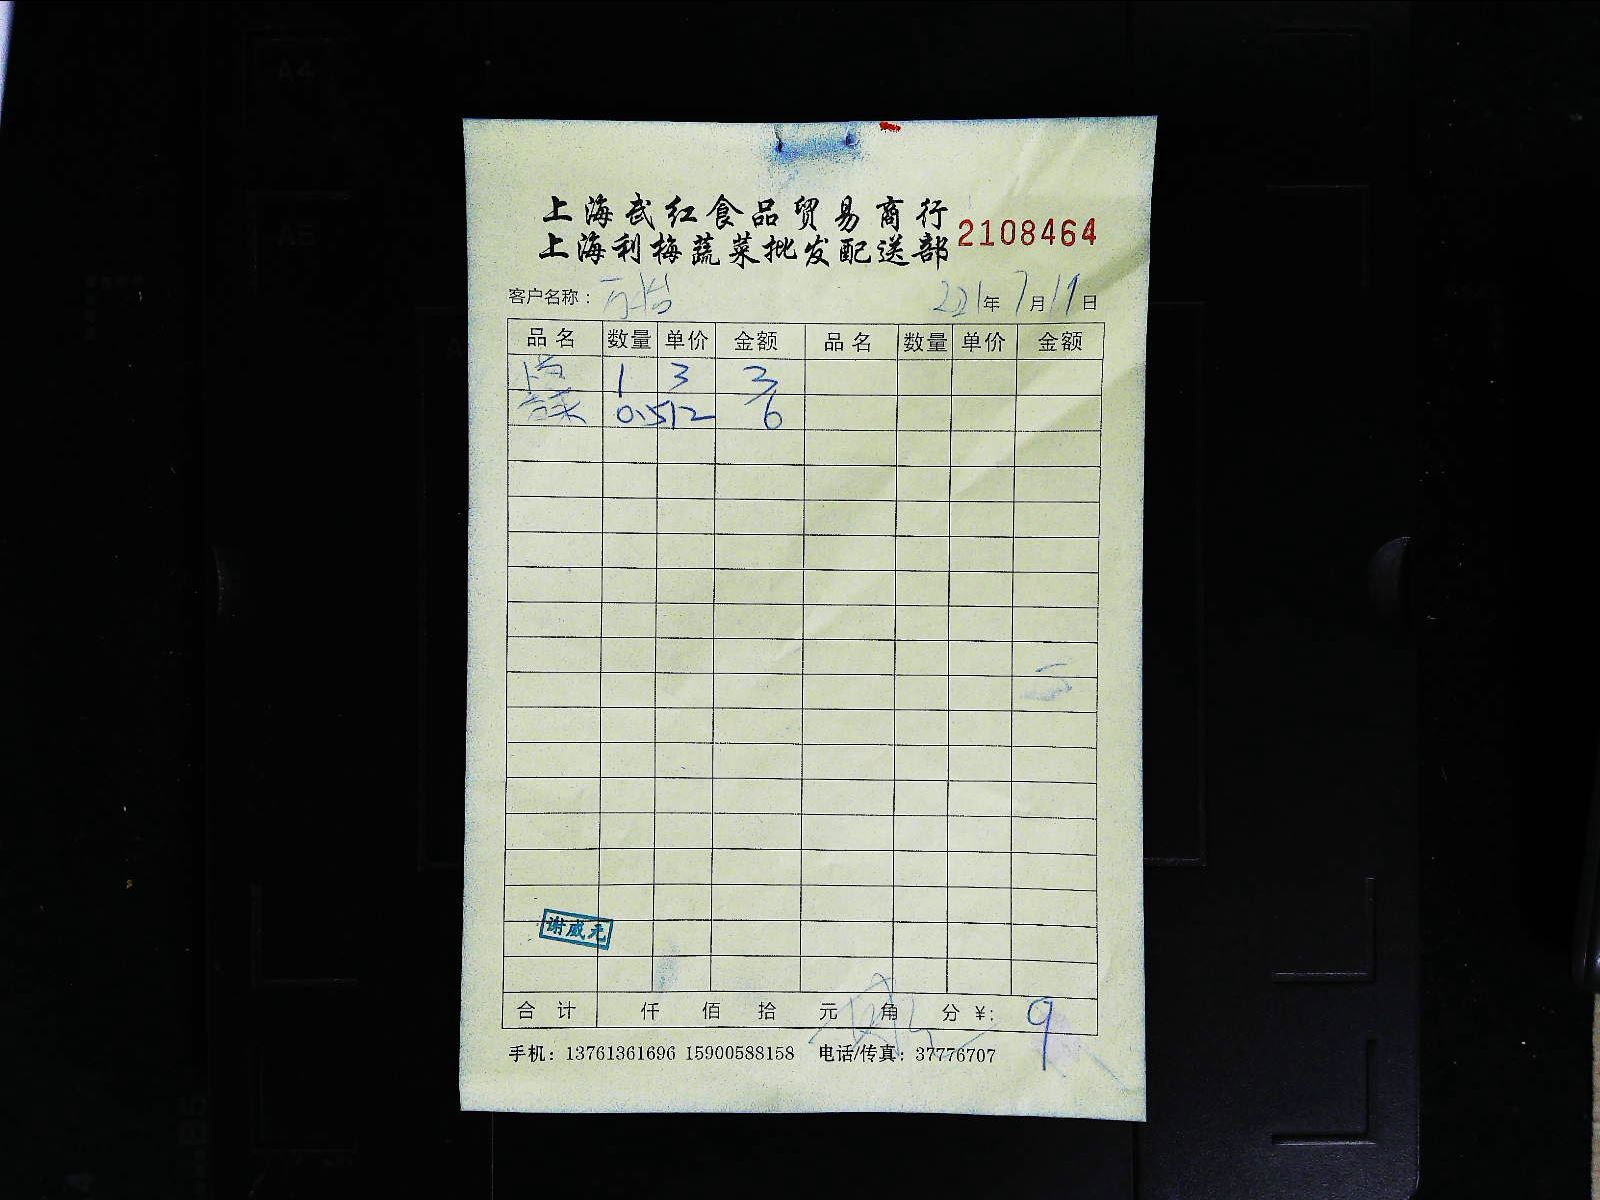 上海武红食品贸易商行
上海利梅蔬菜批发配送部
2108464
客户名称: 年7月19日
品名 数量 单价 金额 品名 数量 单价 金额
1 3 3
0.5 12 6
谢威元
合计 仟 佰 拾 元 角 分 ¥: 9
手机: 13761361696 15900588158 电话/传真: 37776707